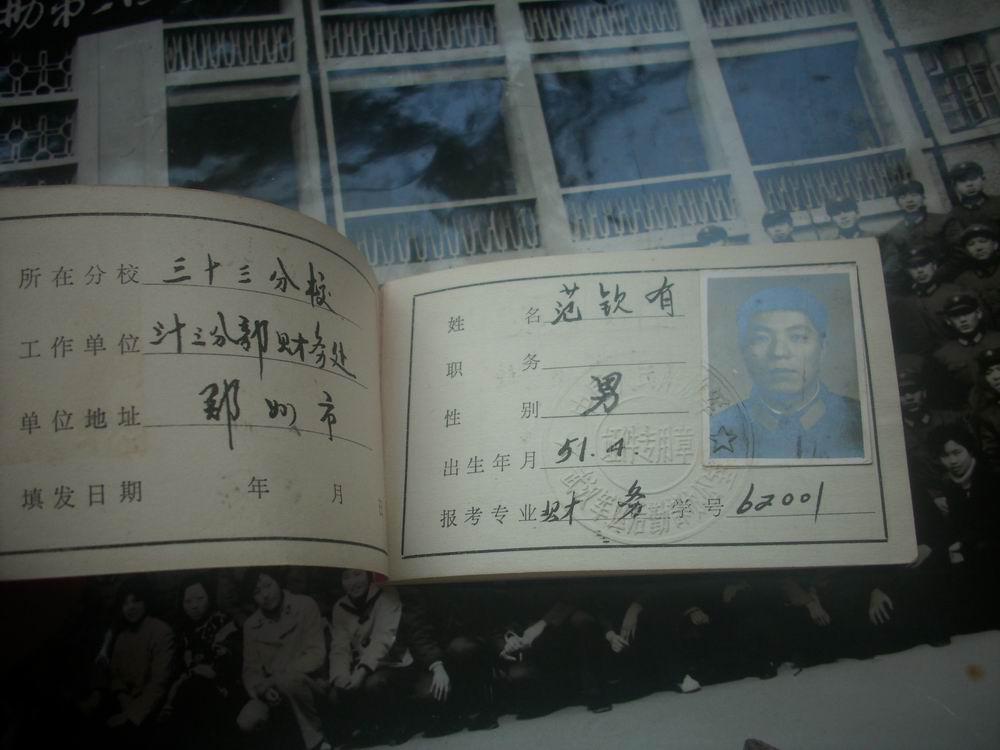 勤第二
所在分校 三十三分校
工作单位 三十三分部财务处
单位地址 郑州市
填发日期 年 月 日
姓名 范钦有
职务
性别 男
出生年月 51.4.
报考专业 财务 学号 62001
证件专用章